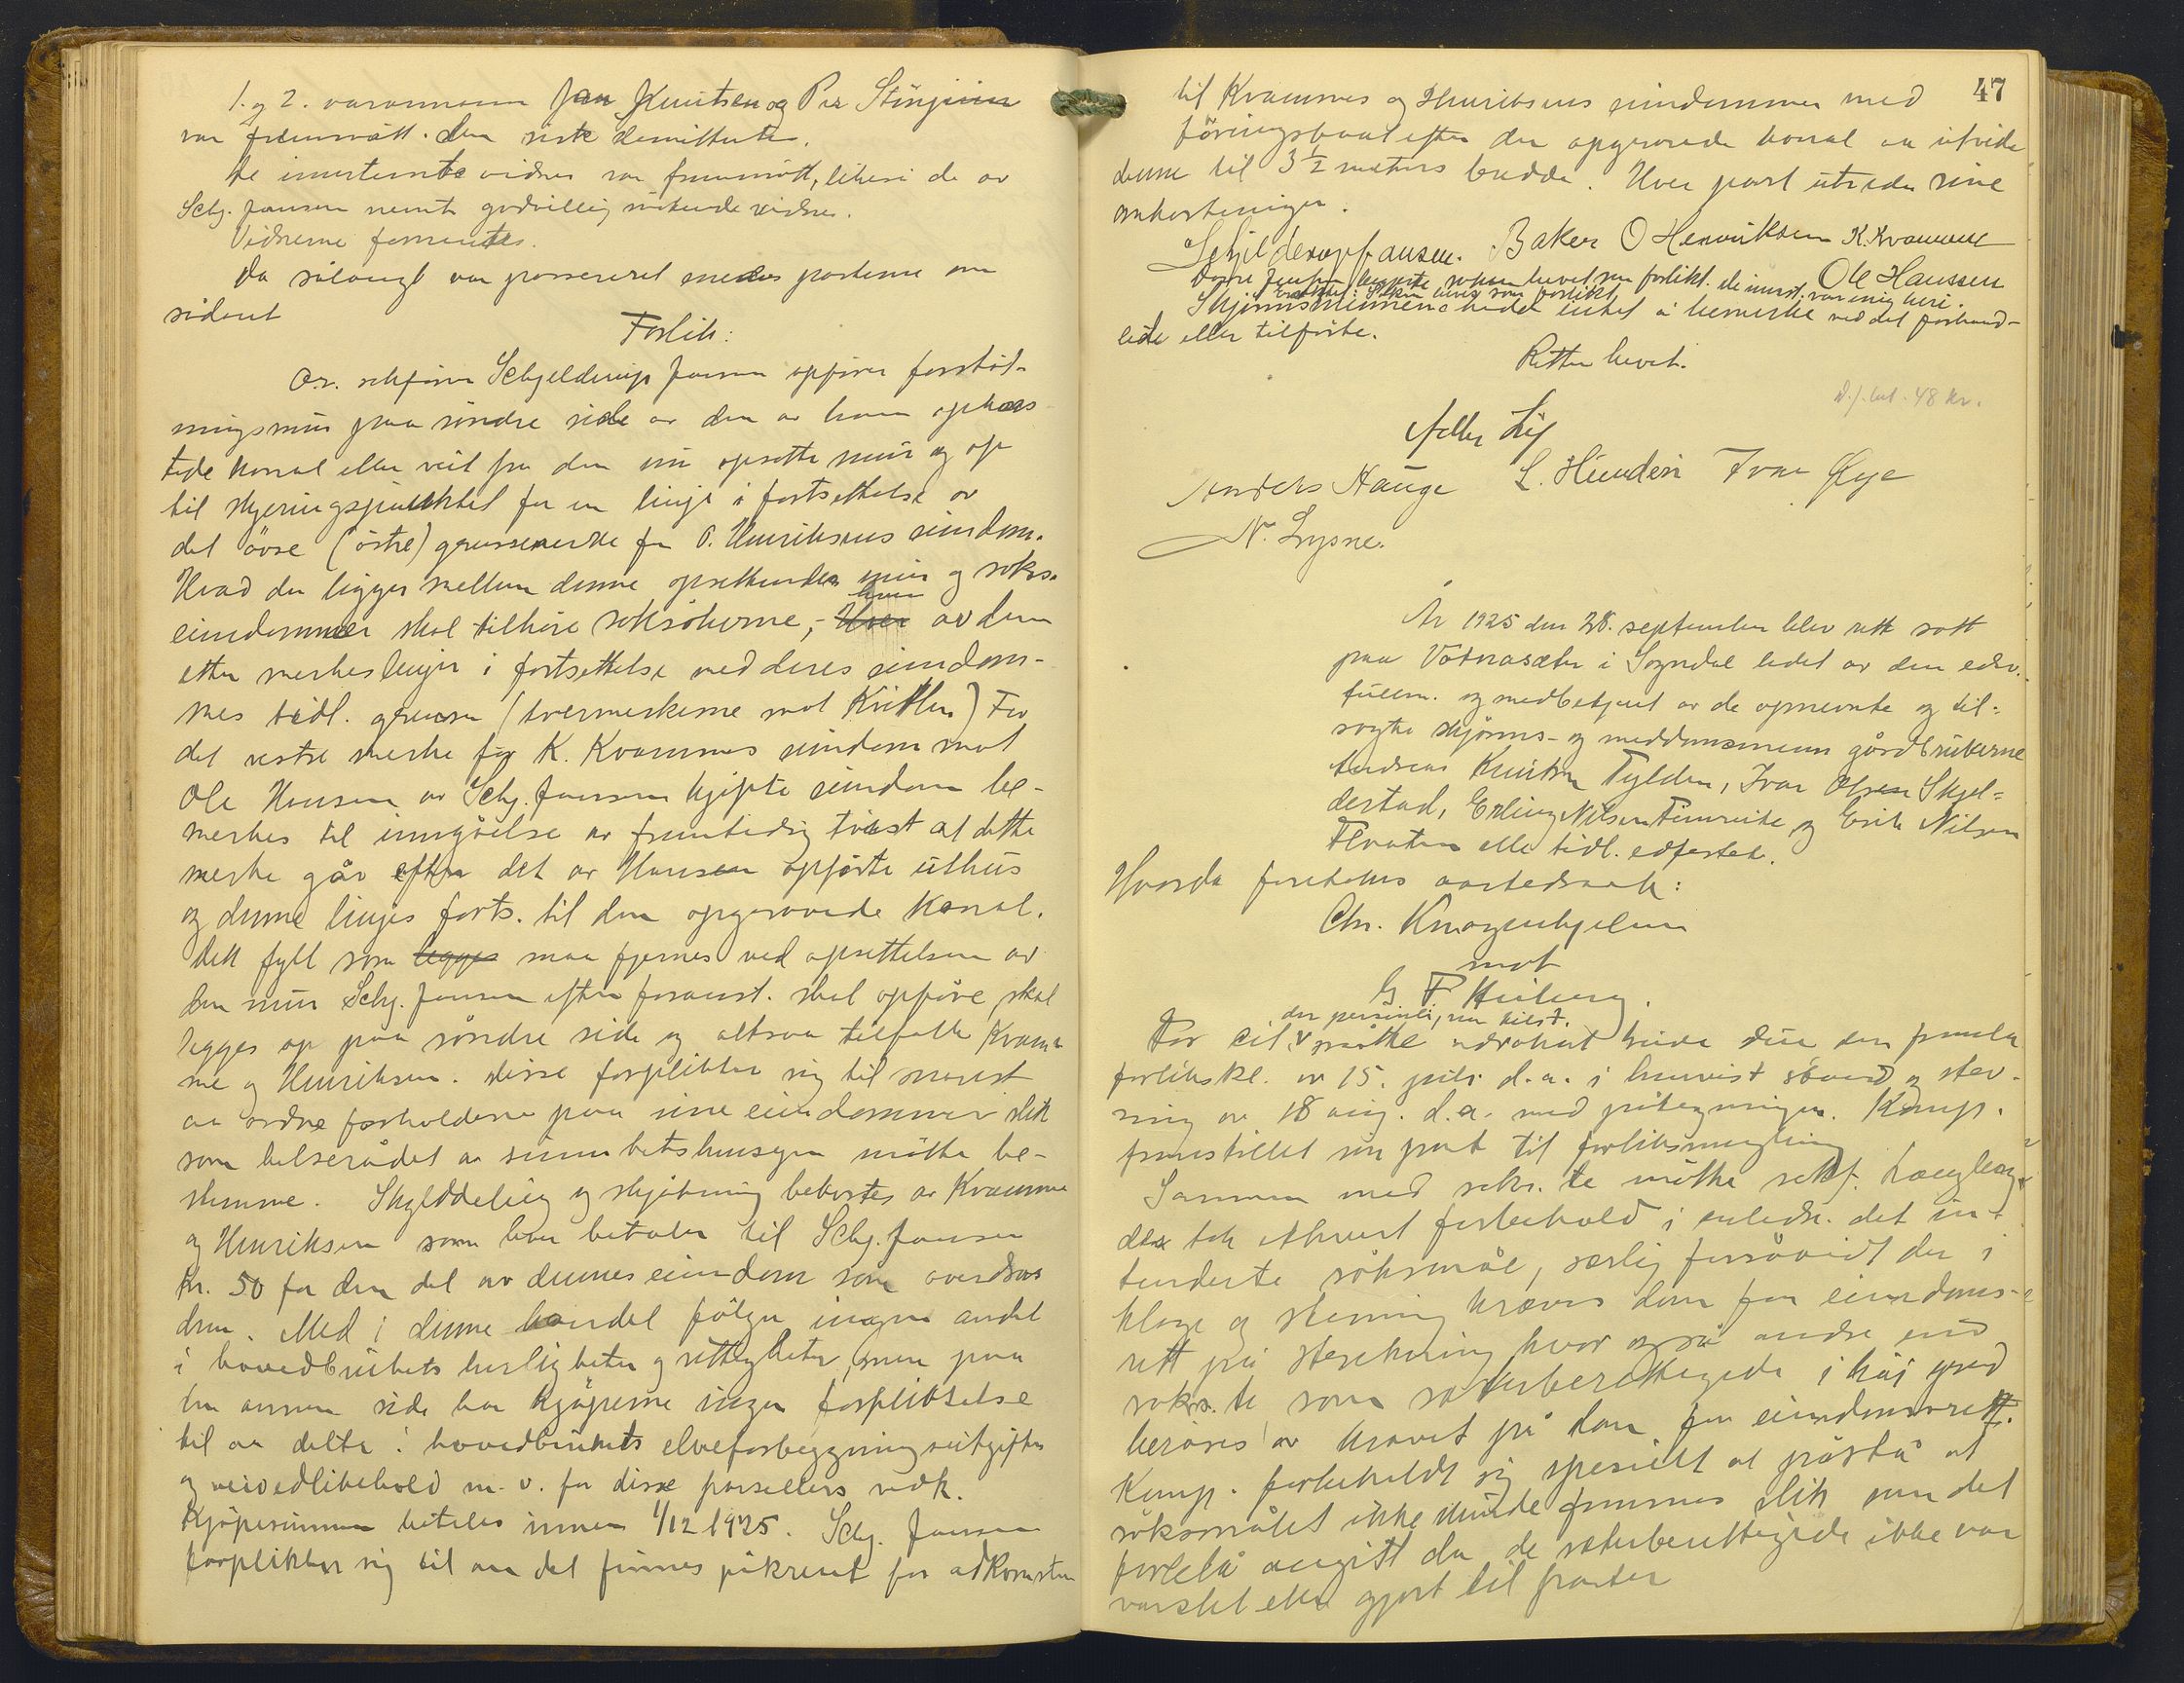 1. og 2. varamann Jan Knutsen og Per Stinjum
var fremmøtt. Den siste demittertes.
De innstevnte vidner var fremmøtt, likeså de av
Schj. Jansen nevnte godvillig møtende vidner.
Vidnerne formantes.
Da sålangt var passeret inngikk partene
sådant
Forlik:
O.r. sakfører Schjelderup Jansen opfører forstøt-
ningsmur paa søndre side av den av ham opkas
tede kanal eller veit fra den nu opsatte mur og op
til skjeringspunktet for en linje i fortsettelse av
det øvre (østre) grensemerke for O. Henriksens eiendom.
Hvad der ligger mellem denne opsettendes mur og saks.
eiendommer skal tilhøre saksøkerne, hver av dem
etter merkeslinjer i fortsettelse med deres eiendom-
mes tidl. grenser (tvermerkerne mot Kvitlen) For
det vestre merke for K. Kvammes eiendom mot
Ole Hansen av Schj. Jansen kjøpte eiendom be-
merkes til inngåelse av fremtidig tvist at dette
merke går efter det av Hansen opførte uthus
og denne linjes forts. til den opgravede kanal.
Dett fyll som maa fjernes ved opsettelsen av
den mur Schj. Jansen efter foranst. skal opføre, skal
legges op paa søndre side og altsaa tilfalle Kvam-
me og Henriksen. Disse forplikter sig til snarest
aa ordne forholdene paa sine eiendommer slik
som helserådet av sunnhetshensyn måtte be-
stemme. Skylddeling og skjøtning bekostes av Kvamme
og Henriksen som hver betaler til Schj. Jansen
kr. 50 for den del av dennes eiendom som overdras
dem. Med i denne handel følger ingen andel
i hovedbrukets herligheter og rettigheter, men paa
den annen side har kjøperne ingen forpliktelse
til aa delta i hovedbrukets elveforbygningsutgifter
og veivedlikehold m. v. for disse parsellers vedk.
Kjøpesummen betales innen 1/12 1925. Schj. Jansen
forplikter sig til aa det finnes påkrevet for adkomsten
47
til Kvammes og Henriksens eiendommer med
føringsbaat efter den opgravede kanal aa utvide
denne til 3 1/2 meters bredde. Hver part utreder sine
omkostninger.
Schjelderup Jansen. Baker O Henriksen K. Kvamme
Ole Hanssen
begjærte saken hevet som forlikt. De innst. var enig heri.
Skjønnsmennene hadde intet å bemerke ved det forhand-
lede eller tilførte.
Retten hevet.
48 kr.
Anders Hauge L. Hunderi Ivar Øye
N. Lysne.
År 1925 den 28. september blev rett satt
paa Vatnasæter i Sogndal ledet av den edsv.
fullm. og medbetjent av de opnevnte og til-
sagte skjønns- og meddomsmenn gårdbrukerne
Andreas Knutsen Fylden, Ivar Olsen Skjel-
destad, Erling Nilsen Fimreite og Erik Nilsen
Flaaten alle tidl. edfestet.
Hvorda foretokes aastedssak:
Chr. Knagenhjelm
mot
G F Heiberg.
der personlig var tilst.
For cit. møtte advokat Due som fremla
forlikskl. av 15. juli d.a. i henvist stand og stev-
ning av 18 aug. d.a. med påtegninger. Komp.
fremstillet sin part til forliksmegling
Sammen med saks.te møtte sakf. Langhang.
der tok ethvert forbehold i anledn. det in-
tenderte søksmål, særlig forsåvidt der i
klage og stevning kræves dom for eiendoms-
rett på strekning hvor også andre end
saks.te som sæterberettigede i høi grad
berøres av kravet på dom for eiendomsrett.
Komp. forbeholdt sig specielt at påstå at
søksmålet ikke kunde fremmes slik som det
forelå avgitt da de sæterberettigede ikke var
varslet eller gjort til parter